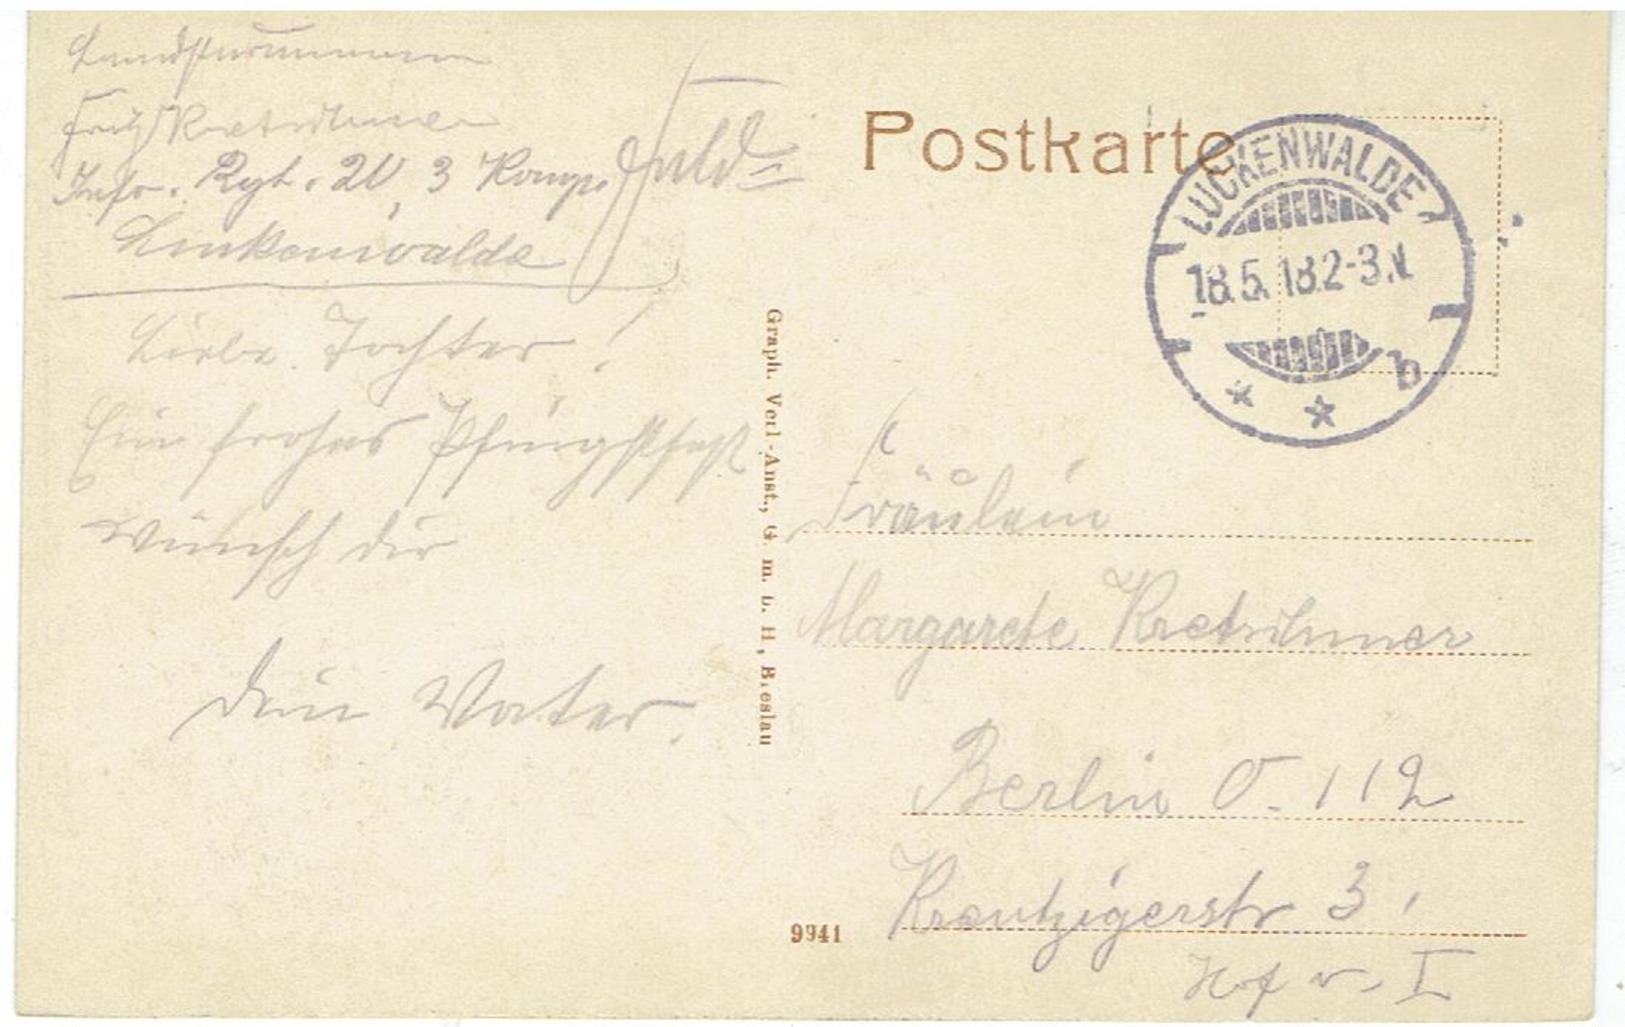 Landsturmmann
Fritz Kretschmer
Inft. Rgt. 20, 3 Komp.
Luckenwalde
Liebe Tochter!
Ein frohes Pfingstfest
wünsch dir
dein Vater.
Graph. Verl.-Anst., G. m. b. H., Breslau
9941
Postkarte
LUCKENWALDE
18.5.18.2-3.N.
* * b
Fräulein
Margarete Kretschmer
Berlin O. 112
Kreutzigerstr 3
Hof v. I